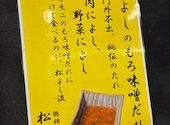 よしのもろ味噌だれ
門外不出、秘伝のたれ
肉によし、
野菜によし
オモニのもろ味噌だれに
け、食べるのが、松よし流
鶴橋
松